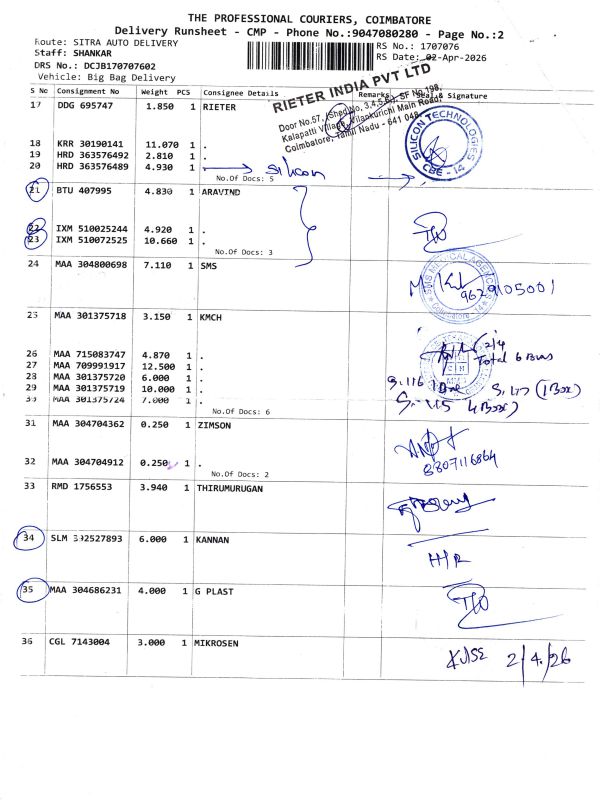 THE PROFESSIONAL COURIERS, COIMBATORE
Delivery Runsheet - CMP - Phone No.:9047080280 - Page No.:2
Route: SITRA AUTO DELIVERY
RS No.: 1707076
Staff: SHANKAR
RS Date: 02-Apr-2026
DRS No.: DCJB170707602
Vehicle: Big Bag Delivery
S No Consignment No Weight PCS Consignee Details Remarks Seal & Signature
RIETER INDIA PVT LTD
Door No.57, (Shed No, 3,4,5,6,), SF No.198,
Kalapatti Village, Vilankurichi Main Road,
Coimbatore, Tamil Nadu - 641 048
17 DDG 695747 1.850 1 RIETER
SILICON TECHNOLOGIES
CBE - 14
18 KRR 30190141 11.070 1 .
19 HRD 363576492 2.810 1 .
20 HRD 363576489 4.930 1 . silicon
No.Of Docs: 5
21 BTU 407995 4.830 1 ARAVIND
22 IXM 510025244 4.920 1 .
23 IXM 510072525 10.660 1 .
No.Of Docs: 3
24 MAA 304800698 7.110 1 SMS
SMS MEDICAL AGENCIES
Coimbatore-14
9629105001
25 MAA 301375718 3.150 1 KMCH
2/4
Total 6 Boxes
26 MAA 715083747 4.870 1 .
27 MAA 709991917 12.500 1 .
28 MAA 301375720 6.000 1 .
29 MAA 301375719 10.000 1 .
30 MAA 301375724 7.000 1 .
S.116 1 Box S.117 (1 Box)
S.115 4 Box)
No.Of Docs: 6
31 MAA 304704362 0.250 1 ZIMSON
8807116864
32 MAA 304704912 0.250 1 .
No.Of Docs: 2
33 RMD 1756553 3.940 1 THIRUMURUGAN
34 SLM 392527893 6.000 1 KANNAN
H/R
35 MAA 304686231 4.000 1 G PLAST
36 CGL 7143004 3.000 1 MIKROSEN
2/4/26